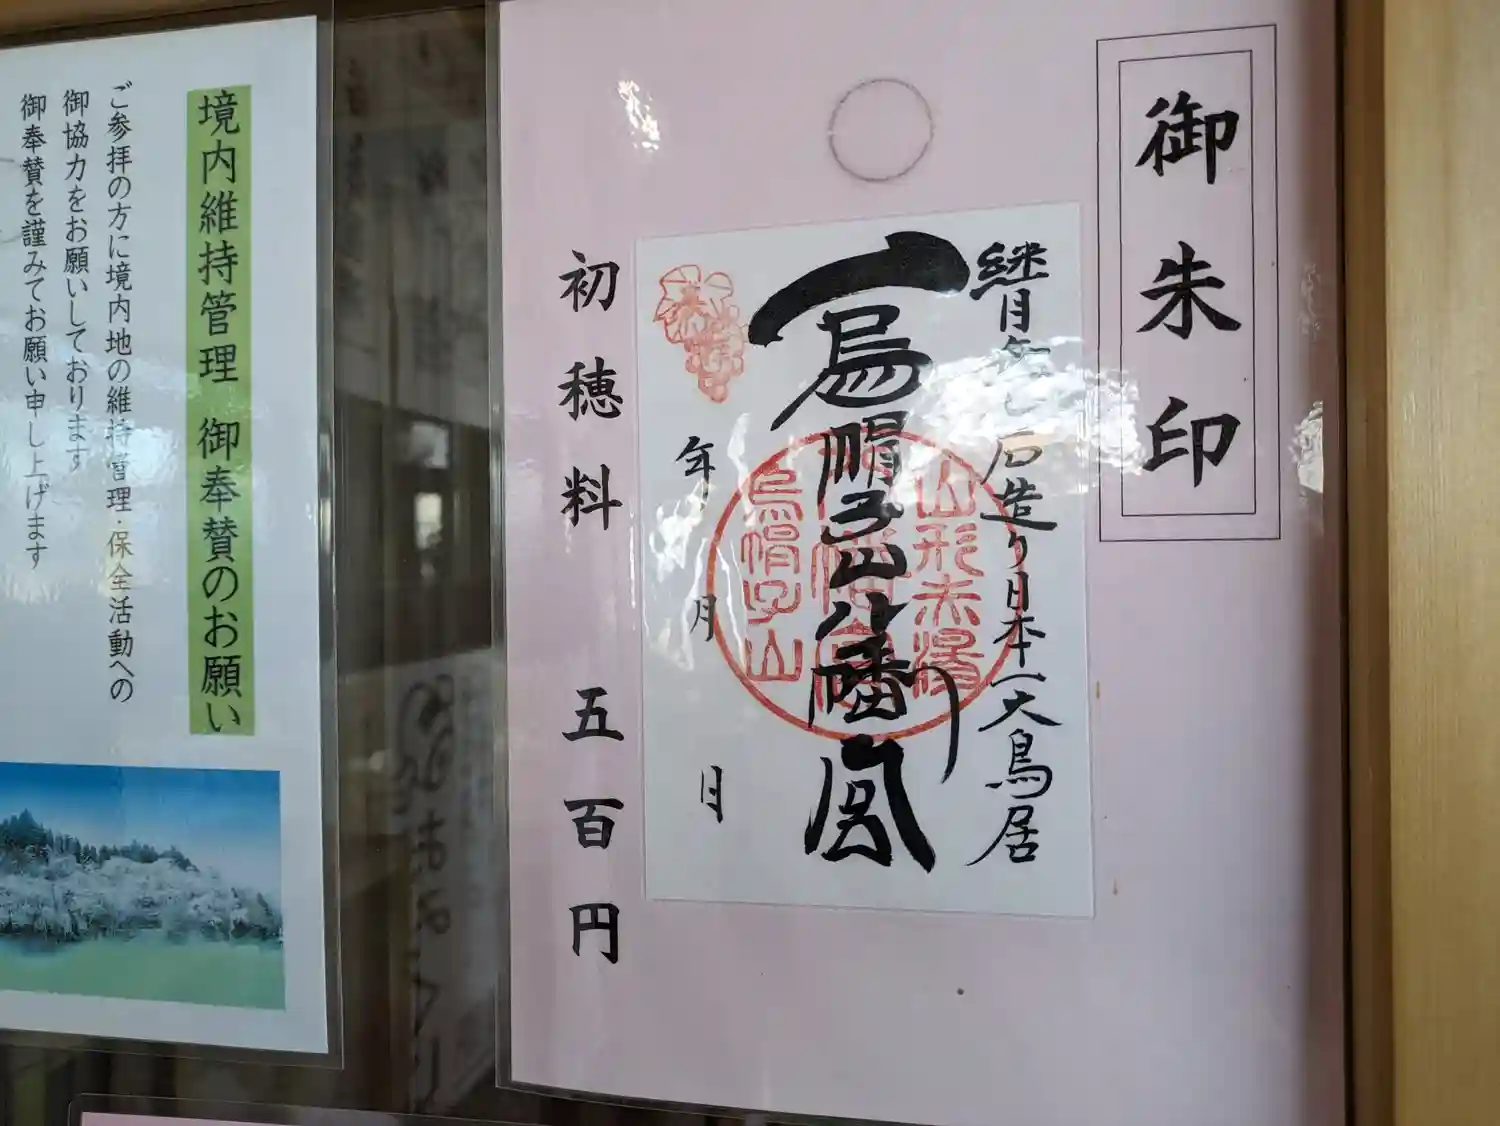 御朱印
継目無し石造り日本一大鳥居
烏帽子山八幡宮
山形赤湯
八幡宮
烏帽子山
年
月
日
初穂料 五百円
境内維持管理 御奉賛のお願い
ご参拝の方に境内地の維持管理・保全活動への
御協力をお願いしております
御奉賛を謹みてお願い申し上げます